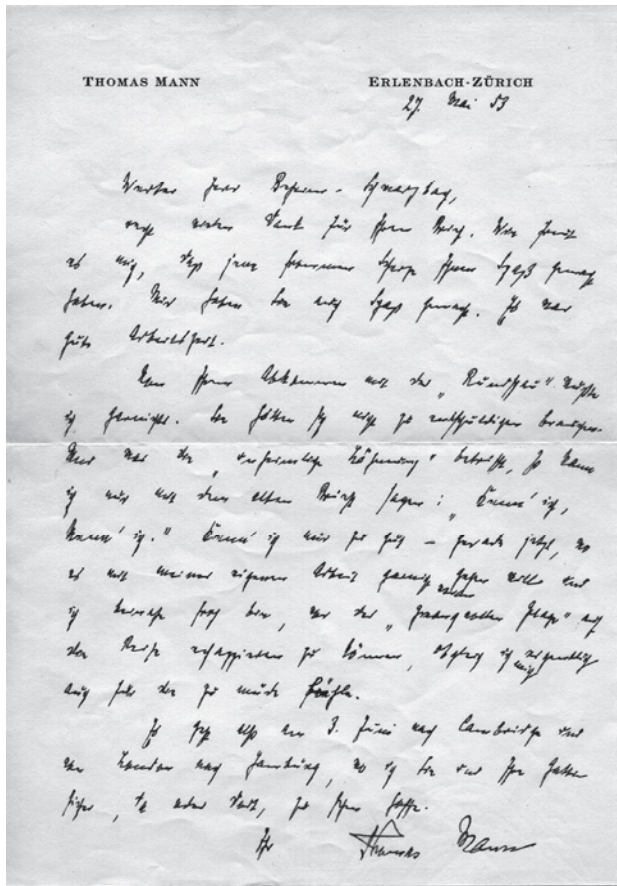 THOMAS MANN ERLENBACH-ZÜRICH
27. Mai 53
Werter Herr Beheim-Schwarzbach,
recht vielen Dank für Ihren Brief. Wie freut
es mich, daß jene Scherze Ihnen Spaß gemacht
haben. Mir haben sie auch Spaß gemacht. Es war
gute Arbeitszeit.
Von Ihrem Abkommen mit der „Rundschau" wußte
ich garnichts. Sie hätten sich nicht zu entschuldigen brauchen.
Und was die „unheimliche Lähmung" betrifft, so kann
ich nur mit dem alten Briest sagen: „Kenn' ich,
kenn' ich." Kenn' ich nur zu gut – gerade jetzt, wo
es mit meiner eigenen Arbeit garnicht weiter gehen will und
ich beinahe froh bin, vor der auf
die Reise echappieren zu können, obgleich ich mich eigentlich
auch für die zu müde fühle.
Es geht also am 3. Juni nach Cambridge und
von London nach Hamburg, wo ich Sie und Ihre Gattin
sicher, da oder dort, zu sehen hoffe.
Ihr Thomas Mann